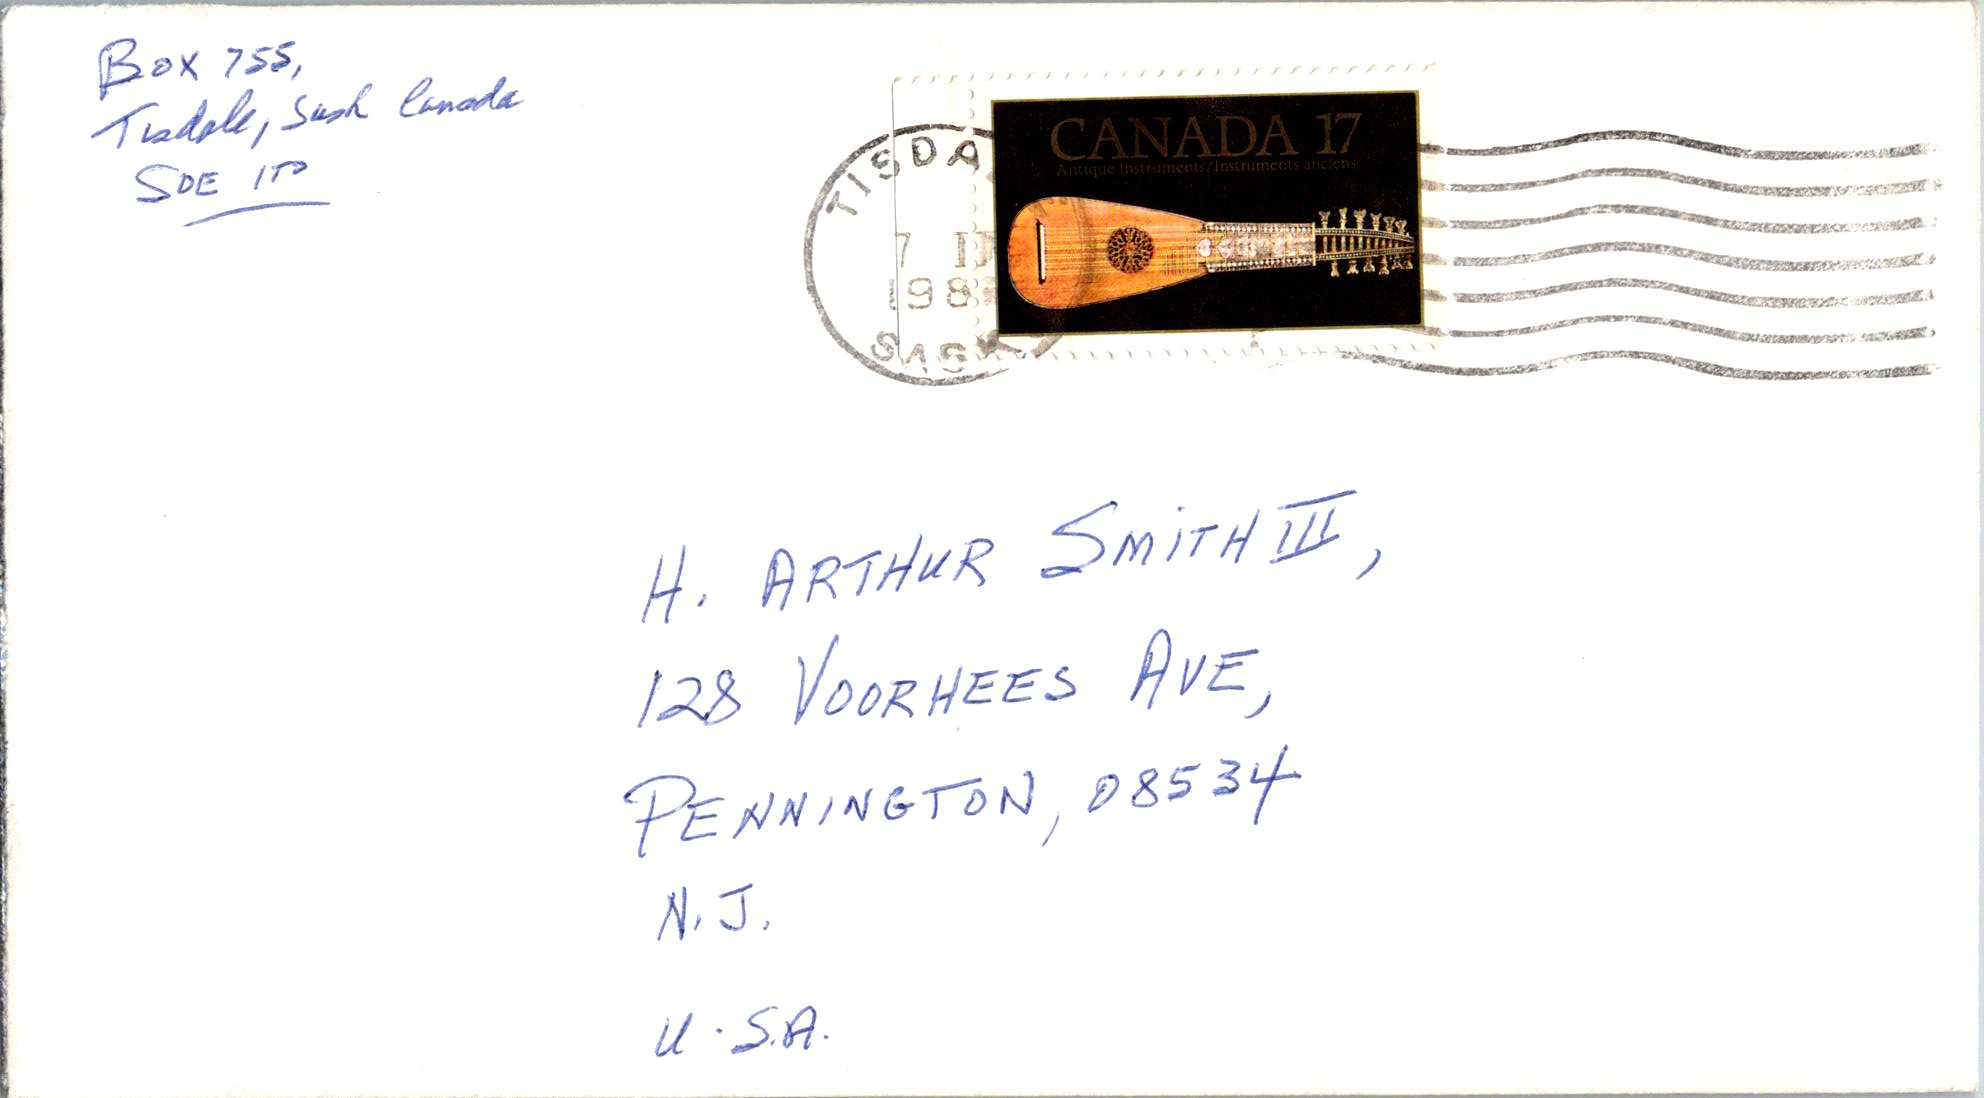 Box 755,
Tisdale, Sask Canada
S0E 1T0
CANADA 17
Antique Instruments/Instruments anciens
TISDA
7 II
198
SASK
H. ARTHUR SMITH III,
128 VOORHEES AVE,
PENNINGTON, 08534
N.J.
U.S.A.